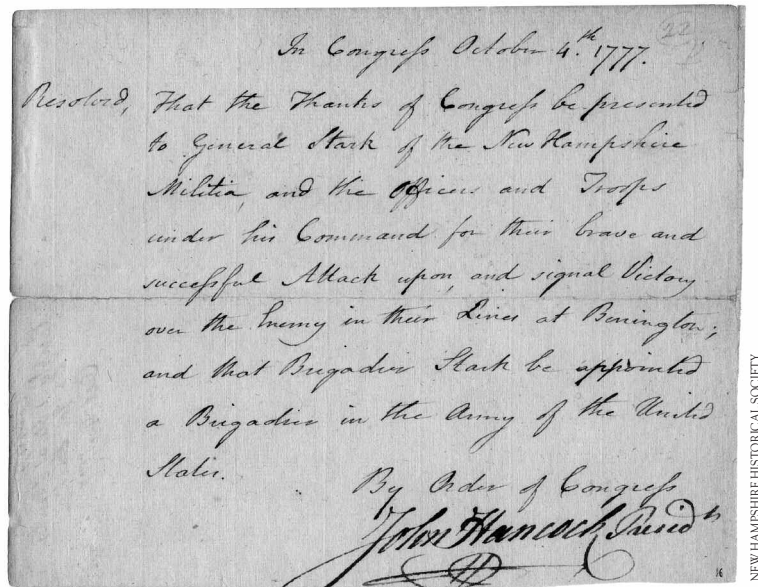 22
In Congress October 4.th 1777.
Resolved, That the Thanks of Congress be presented
to General Stark of the New Hampshire
Militia, and the Officers and Troops
under his Command for their brave and
successful Attack upon, and signal Victory
over the Enemy in their Lines at Benington;
and that Brigadier Stark be appointed
a Brigadier in the Army of the United
States.
By Order of Congress
John Hancock Presidt
16
NEW HAMPSHIRE HISTORICAL SOCIETY